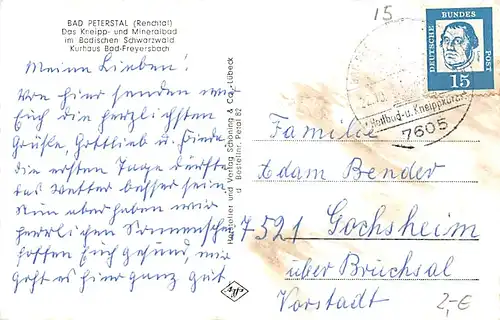 BAD PETERSTAL (Renchtal)
Das Kneipp- und Mineralbad
im Badischen Schwarzwald
Kurhaus Bad-Freyersbach
Meine Lieben!
Von hier senden wir
Euch die herzlichsten
Grüße, Gottlieb u. Frieda.
die ersten Tage dürfte
das Wetter besser sein.
Nun aber haben wir
herrlichen Sonnenschein
hoffen Euch gesund, mir
geht es hier ganz gut.
Hersteller und Verlag Schöning & Co., Lübeck
Bestellnr. Petal 82
15
DEUTSCHE BUNDES POST
15
7605
Familie
Adam Bender
7521 Gochsheim
über Bruchsal
Vorstadt
2,-€